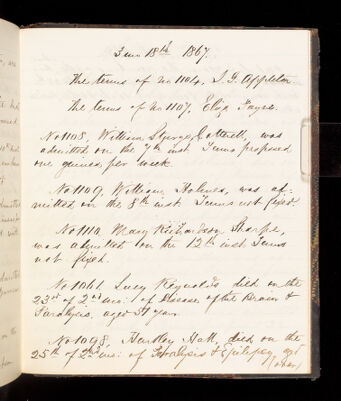 June 18th 1867.
The terms of No 1104, J. G. Appleton
The terms of No 1107, Eliza Payne.
No 1108, William Cottrell, was
admitted on the 7th inst. Terms proposed
one guinea per week.
No 1109, William Holmes, was ad-
mitted on the 8th inst. Terms not fixed
No 1110. Mary Richardson Sharpe,
was admitted on the 12th inst Terms
not fixed.
No 1061. Lucy Reynolds died on the
23rd of 2nd mo: of Disease of the Brain &
Paralysis, aged 51 years.
No 1098. Hartley Hall, died on the
25th of 2nd mo: of Paralysis & Epilepsy, agd
(over)